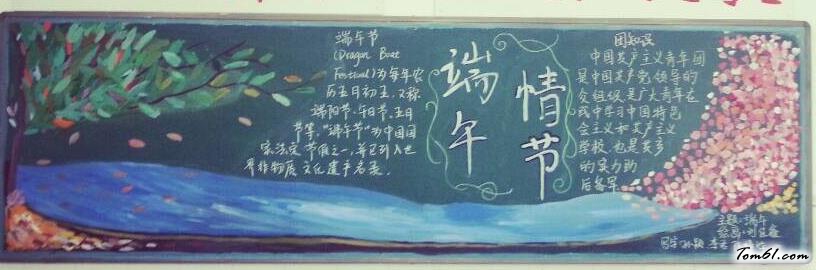 端午节
(Dragon Boat
Festival)为每年农
历五月初五,又称
端阳节、午日节、五月
节等,“端午节”为中国国
家法定节假之一,并已列入世
界非物质文化遗产名录。
端午
情节
团知识
中国共产主义青年团
是中国共产党领导的
组织,是广大青年在
中学习中国特色
会主义和共产主义
学校,也是共
的
后备军
主题:端午
Tom61.com